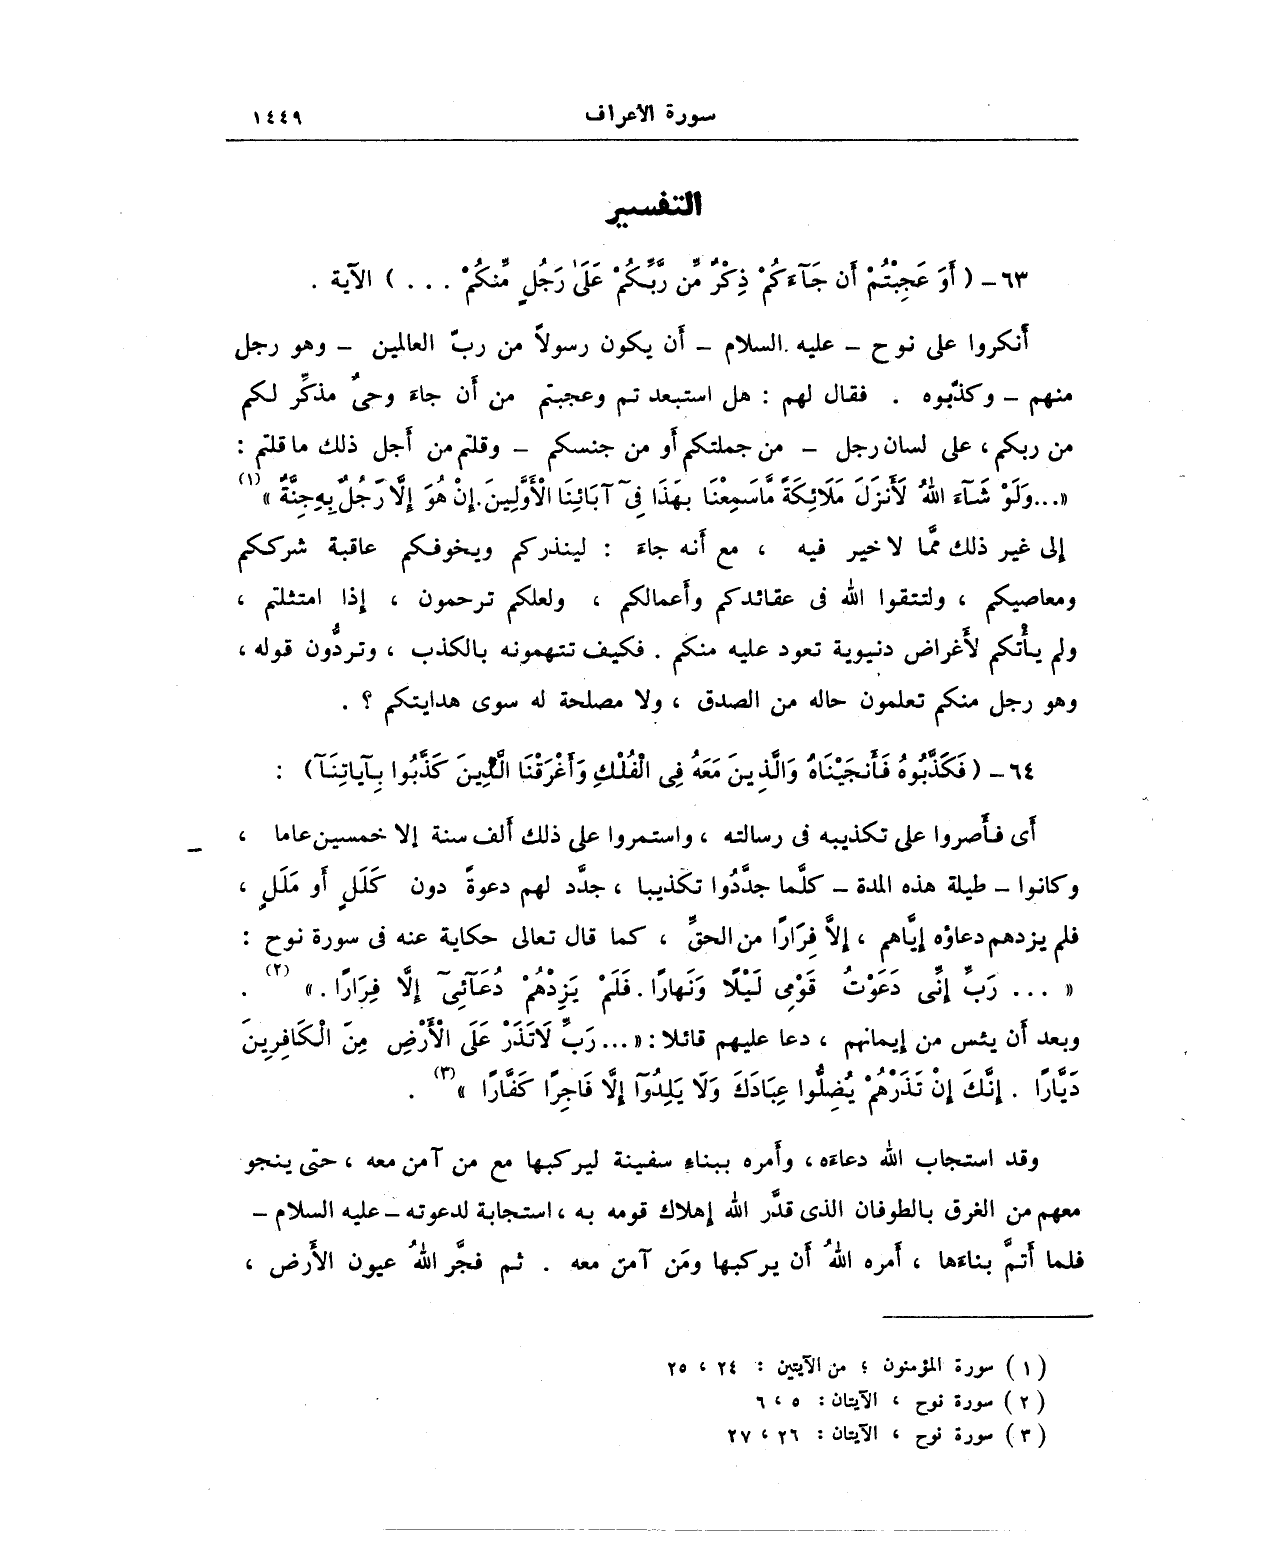 سورة الأعراف ١٤٤٩
التفسير
٦٣ – ( أَوَ عَجِبْتُمْ أَن جَآءَكُمْ ذِكْرٌ مِّن رَّبِّكُمْ عَلَىٰ رَجُلٍ مِّنكُمْ . . . ) الآية .
أنكروا على نوح – عليه السلام – أن يكون رسولاً من ربّ العالمين – وهو رجل
منهم – وكذَّبوه . فقال لهم : هل استبعد تم وعجبتم من أن جاءَ وحىٌ مذكِّر لكم
من ربكم ، على لسان رجل – من جملتكم أو من جنسكم – وقلتم من أجل ذلك ما قلتم :
«...وَلَوْ شَآءَ اللهُ لَأَنزَلَ مَلَائِكَةً مَّاسَمِعْنَا بِهَذَا فِىٓ آبَائِنَا الْأَوَّلِينَ . إِنْ هُوَ إِلَّا رَجُلٌ بِهِ جِنَّةٌ » (١)
إلى غير ذلك ممَّا لا خير فيه ، مع أنه جاءَ : لينذركم ويخوفكم عاقبة شرككم
ومعاصيكم ، ولتتقوا الله فى عقائدكم وأعمالكم ، ولعلكم ترحمون ، إذا امتثلتم ،
ولم يأتكم لأغراض دنيوية تعود عليه منكم . فكيف تتهمونه بالكذب ، وتردُّون قوله ،
وهو رجل منكم تعلمون حاله من الصدق ، ولا مصلحة له سوى هدايتكم ؟ .
٦٤ – ( فَكَذَّبُوهُ فَأَنجَيْنَاهُ وَالَّذِينَ مَعَهُ فِى الْفُلْكِ وَأَغْرَقْنَا الَّذِينَ كَذَّبُوا بِآيَاتِنَآ ) :
أى فأصروا على تكذيبه فى رسالته ، واستمروا على ذلك ألف سنة إلا خمسين عاما ،
وكانوا – طيلة هذه المدة – كلَّما جدَّدُوا تكذيبا ، جدَّد لهم دعوةً دون كَلَلٍ أو مَلَلٍ ،
فلم يزدهم دعاؤه إيَّاهم ، إلاَّ فِرَارًا من الحقِّ ، كما قال تعالى حكاية عنه فى سورة نوح :
« ... رَبِّ إِنِّى دَعَوْتُ قَوْمِى لَيْلًا وَنَهارًا . فَلَمْ يَزِدْهُمْ دُعَآئِىٓ إِلَّا فِرَارًا . » (٢) .
وبعد أن يئس من إيمانهم ، دعا عليهم قائلا : «...رَبِّ لَاتَذَرْ عَلَى الْأَرْضِ مِنَ الْكَافِرِينَ
دَيَّارًا . إِنَّكَ إِنْ تَذَرْهُمْ يُضِلُّوا عِبَادَكَ وَلَا يَلِدُوٓا إِلَّا فَاجِرًا كَفَّارًا » (٣) .
وقد استجاب الله دعاءَه ، وأمره ببناءِ سفينة ليركبها مع من آمن معه ، حتى ينجو
معهم من الغرق بالطوفان الذى قدَّر الله إهلاك قومه به ، استجابة لدعوته – عليه السلام –
فلما أتمَّ بناءَها ، أمره اللهُ أن يركبها ومَن آمن معه . ثم فجَّر اللهُ عيون الأرض ،
( ١ ) سورة المؤمنون ؛ من الآيتين : ٢٤ ، ٢٥
( ٢ ) سورة نوح ، الآيتان : ٥ ، ٦
( ٣ ) سورة نوح ، الآيتان : ٢٦ ، ٢٧